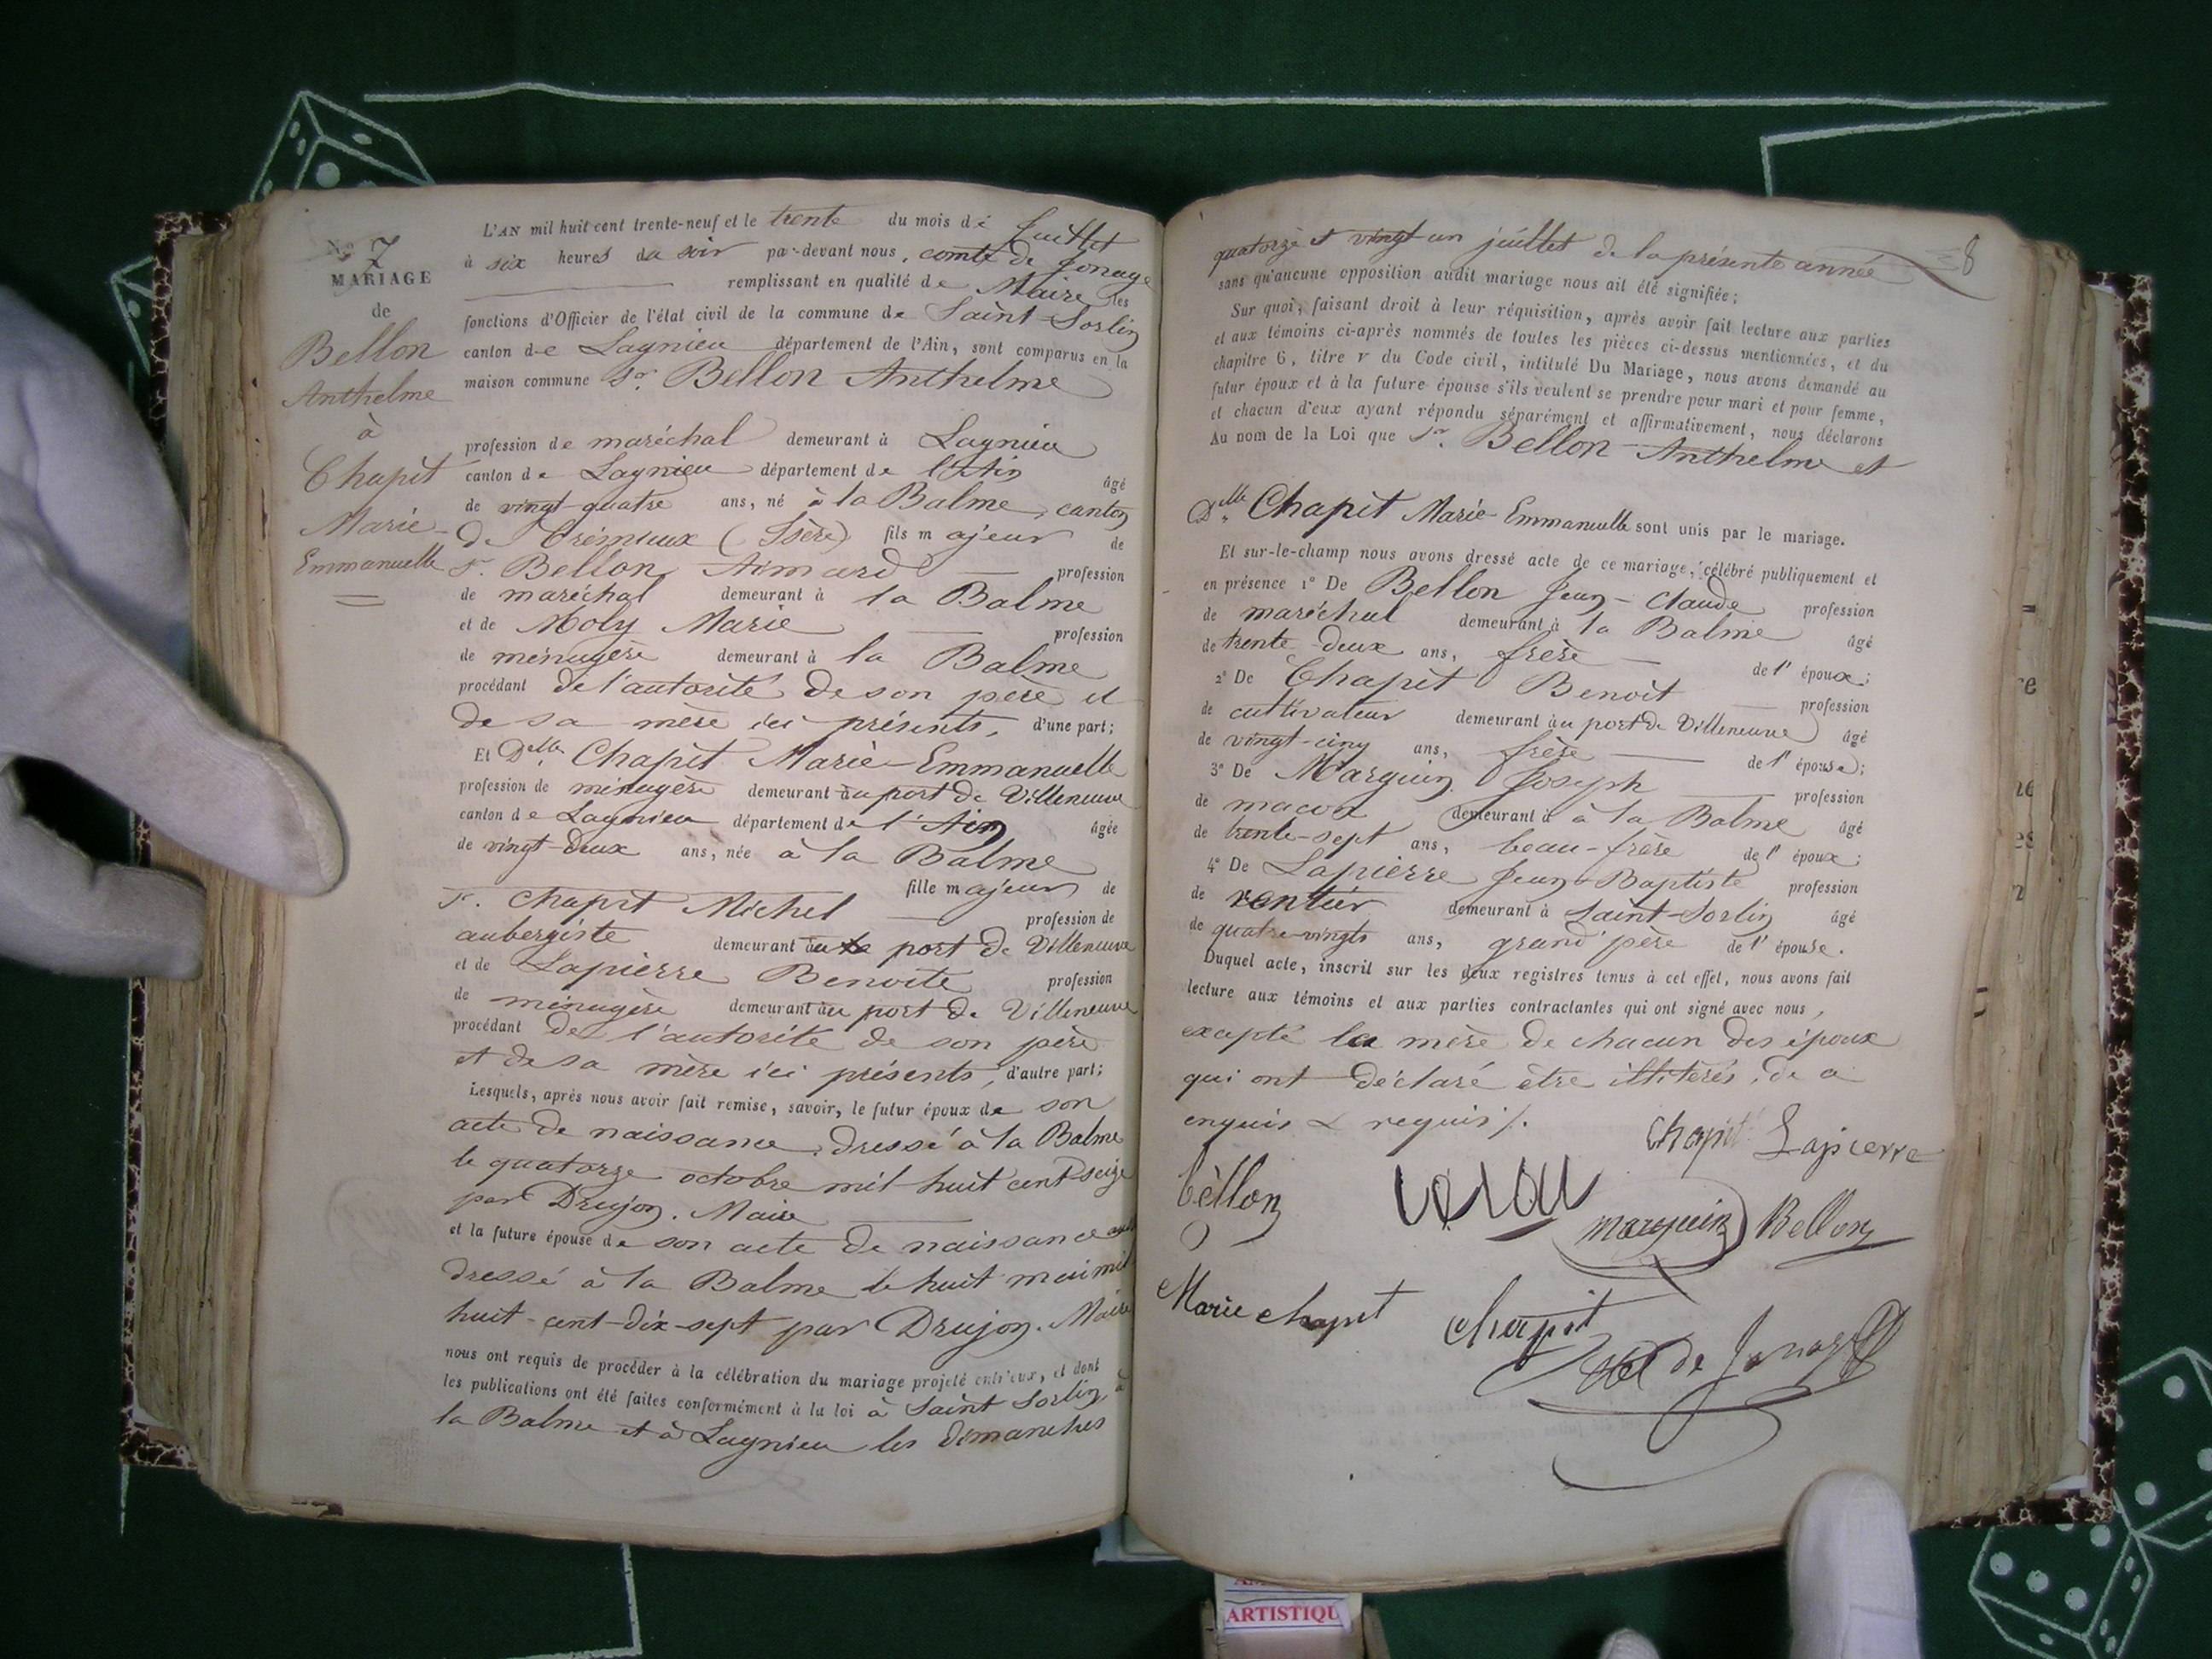 N.º 7
MARIAGE
de
Bellon
Anthelme
à
Chapit
Marie-
Emmanuelle
L'AN mil huit cent trente-neuf et le trente du mois de Juillet
à six heures du soir par-devant nous, comte de Jonage
remplissant en qualité de Maire les
fonctions d'Officier de l'état civil de la commune de Saint-Sorlin
canton de Lagnieu département de l'Ain, sont comparus en la
maison commune Sr. Bellon Anthelme
profession de maréchal demeurant à Lagnieu
canton de Lagnieu département de l'Ain âgé
de vingt-quatre ans, né à la Balme, canton
de Crémieux (Isère) fils majeur de
Sr. Bellon Aimard profession
de maréchal demeurant à la Balme
et de Moly Marie profession
de ménagère demeurant à la Balme
procédant de l'autorité de son père et
de sa mère ici présents, d'une part;
Et Delle. Chapit Marie-Emmanuelle
profession de ménagère demeurant au port de Villeneuve
canton de Lagnieu département de l'Ain âgée
de vingt-deux ans, née à la Balme
fille majeur de
Sr. Chapit Michel profession de
aubergiste demeurant au port de Villeneuve
et de Lapierre Benoite profession
de ménagère demeurant au port de Villeneuve
procédant de l'autorité de son père
et de sa mère ici présents, d'autre part;
Lesquels, après nous avoir fait remise, savoir, le futur époux de son
acte de naissance, dressé à la Balme
le quatorze octobre mil huit cent seize
par Drujon. Maire
et la future épouse de son acte de naissance aussi
dressé à la Balme le huit mai mil
huit-cent-dix-sept par Drujon. Maire
nous ont requis de procéder à la célébration du mariage projeté entr'eux, et dont
les publications ont été faites conformément à la loi à Saint Sorlin, à
la Balme et à Lagnieu les dimanches
8
quatorze et vingt un juillet de la présente année
sans qu'aucune opposition audit mariage nous ait été signifiée;
Sur quoi, faisant droit à leur réquisition, après avoir fait lecture aux parties
et aux témoins ci-après nommés de toutes les pièces ci-dessus mentionnées, et du
chapitre 6, titre V du Code civil, intitulé Du Mariage, nous avons demandé au
futur époux et à la future épouse s'ils veulent se prendre pour mari et pour femme,
et chacun d'eux ayant répondu séparément et affirmativement, nous déclarons
Au nom de la Loi que Sr. Bellon Anthelme et
Delle. Chapit Marie-Emmanuelle sont unis par le mariage.
Et sur-le-champ nous avons dressé acte de ce mariage, célébré publiquement et
en présence 1º De Bellon Jean-Claude profession
de maréchal demeurant à la Balme âgé
de trente-deux ans, frère de l'époux;
2º De Chapit Benoit profession
de cultivateur demeurant au port de Villeneuve âgé
de vingt-cinq ans, frère de l'épouse;
3º De Marquin Joseph profession
de maçon demeurant à à la Balme âgé
de trente-sept ans, beau-frère de l'époux;
4º De Lapierre Jean-Baptiste profession
de rentier demeurant à Saint-Sorlin âgé
de quatre-vingts ans, grand'père de l'épouse.
Duquel acte, inscrit sur les deux registres tenus à cet effet, nous avons fait
lecture aux témoins et aux parties contractantes qui ont signé avec nous,
excepté la mère de chacun des époux
qui ont déclaré être illiterés, de ce
enquis & requis /.
Chapit Lapierre
bèllon
marquin Bellon
Marie chapit chapit
de Jonage
ARTISTIQU